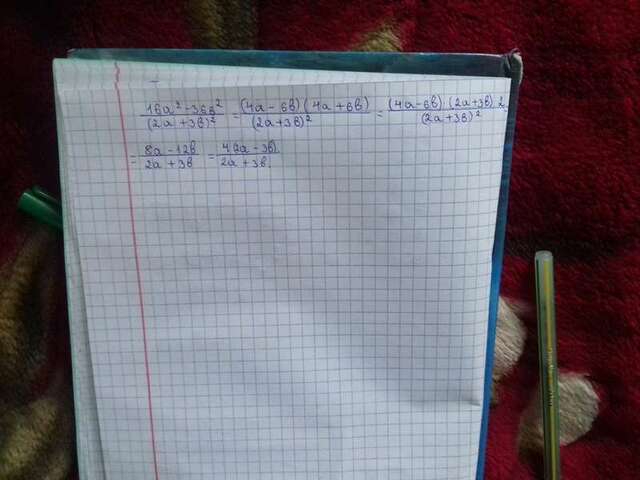 (16a² - 36b²)/(2a + 3b)² = (4a - 6b)(4a + 6b)/(2a + 3b)² = (4a - 6b)·(2a + 3b)·2/(2a + 3b)²
= (8a - 12b)/(2a + 3b) = 4(2a - 3b)/(2a + 3b)